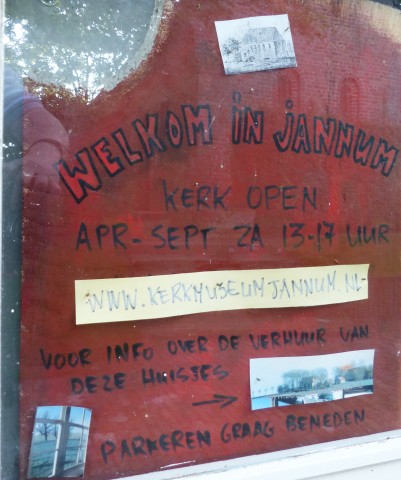 WELKOM in JANNUM
KERK OPEN
APR-SEPT ZA 13-17 UUR
WWW.KERKMUSEUMJANNUM.NL-
VOOR INFO OVER DE VERHUUR VAN
DEZE HUISJES →
PARKEREN GRAAG BENEDEN